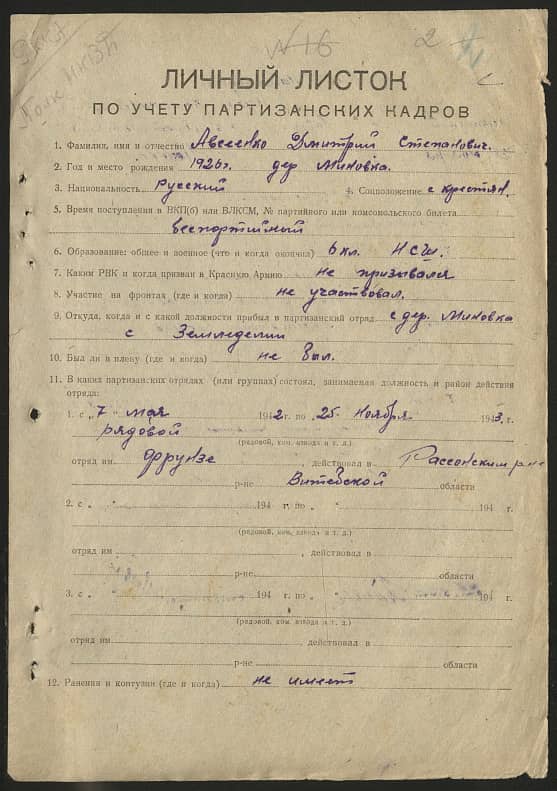 №16
2
ЛИЧНЫЙ ЛИСТОК
ПО УЧЕТУ ПАРТИЗАНСКИХ КАДРОВ
1. Фамилия, имя и отчество Авсеенко Дмитрий Степанович.
2. Год и место рождения 1926г. дер. Миновка.
3. Национальность Русский 4. Соцположение с крестян.
5. Время поступления в ВКП(б) или ВЛКСМ, № партийного или комсомольского билета
беспортийный
6. Образование: общее и военное (что и когда окончил) 6 кл. НСШ.
7. Каким РВК и когда призван в Красную Армию не призывался
8. Участие на фронтах (где и когда) не участвовал.
9. Откуда, когда и с какой должности прибыл в партизанский отряд с дер. Миновка
с Земледелии
10. Был ли в плену (где и когда) не был.
11. В каких партизанских отрядах (или группах) состоял, занимаемая должность и район действия
отряда:
1. с „7“ мая 1942 г. по „25“ ноября 1943 г.
рядовой
(рядовой, ком. взвода и т. д.)
отряд им Фрунзе действовал в Рассонским р-не
р-не Витебской области
2. с „ “ 194 г. по „ “ 194 г.
(рядовой, ком. взвода и т. д.)
отряд им , действовал в
р-не. области
3. с „ “ 194 г. по „ “ 194 г.
(рядовой, ком. взвода и т. д.)
отряд им действовал в
р-не области
12. Ранения и контузии (где и когда) не имеет